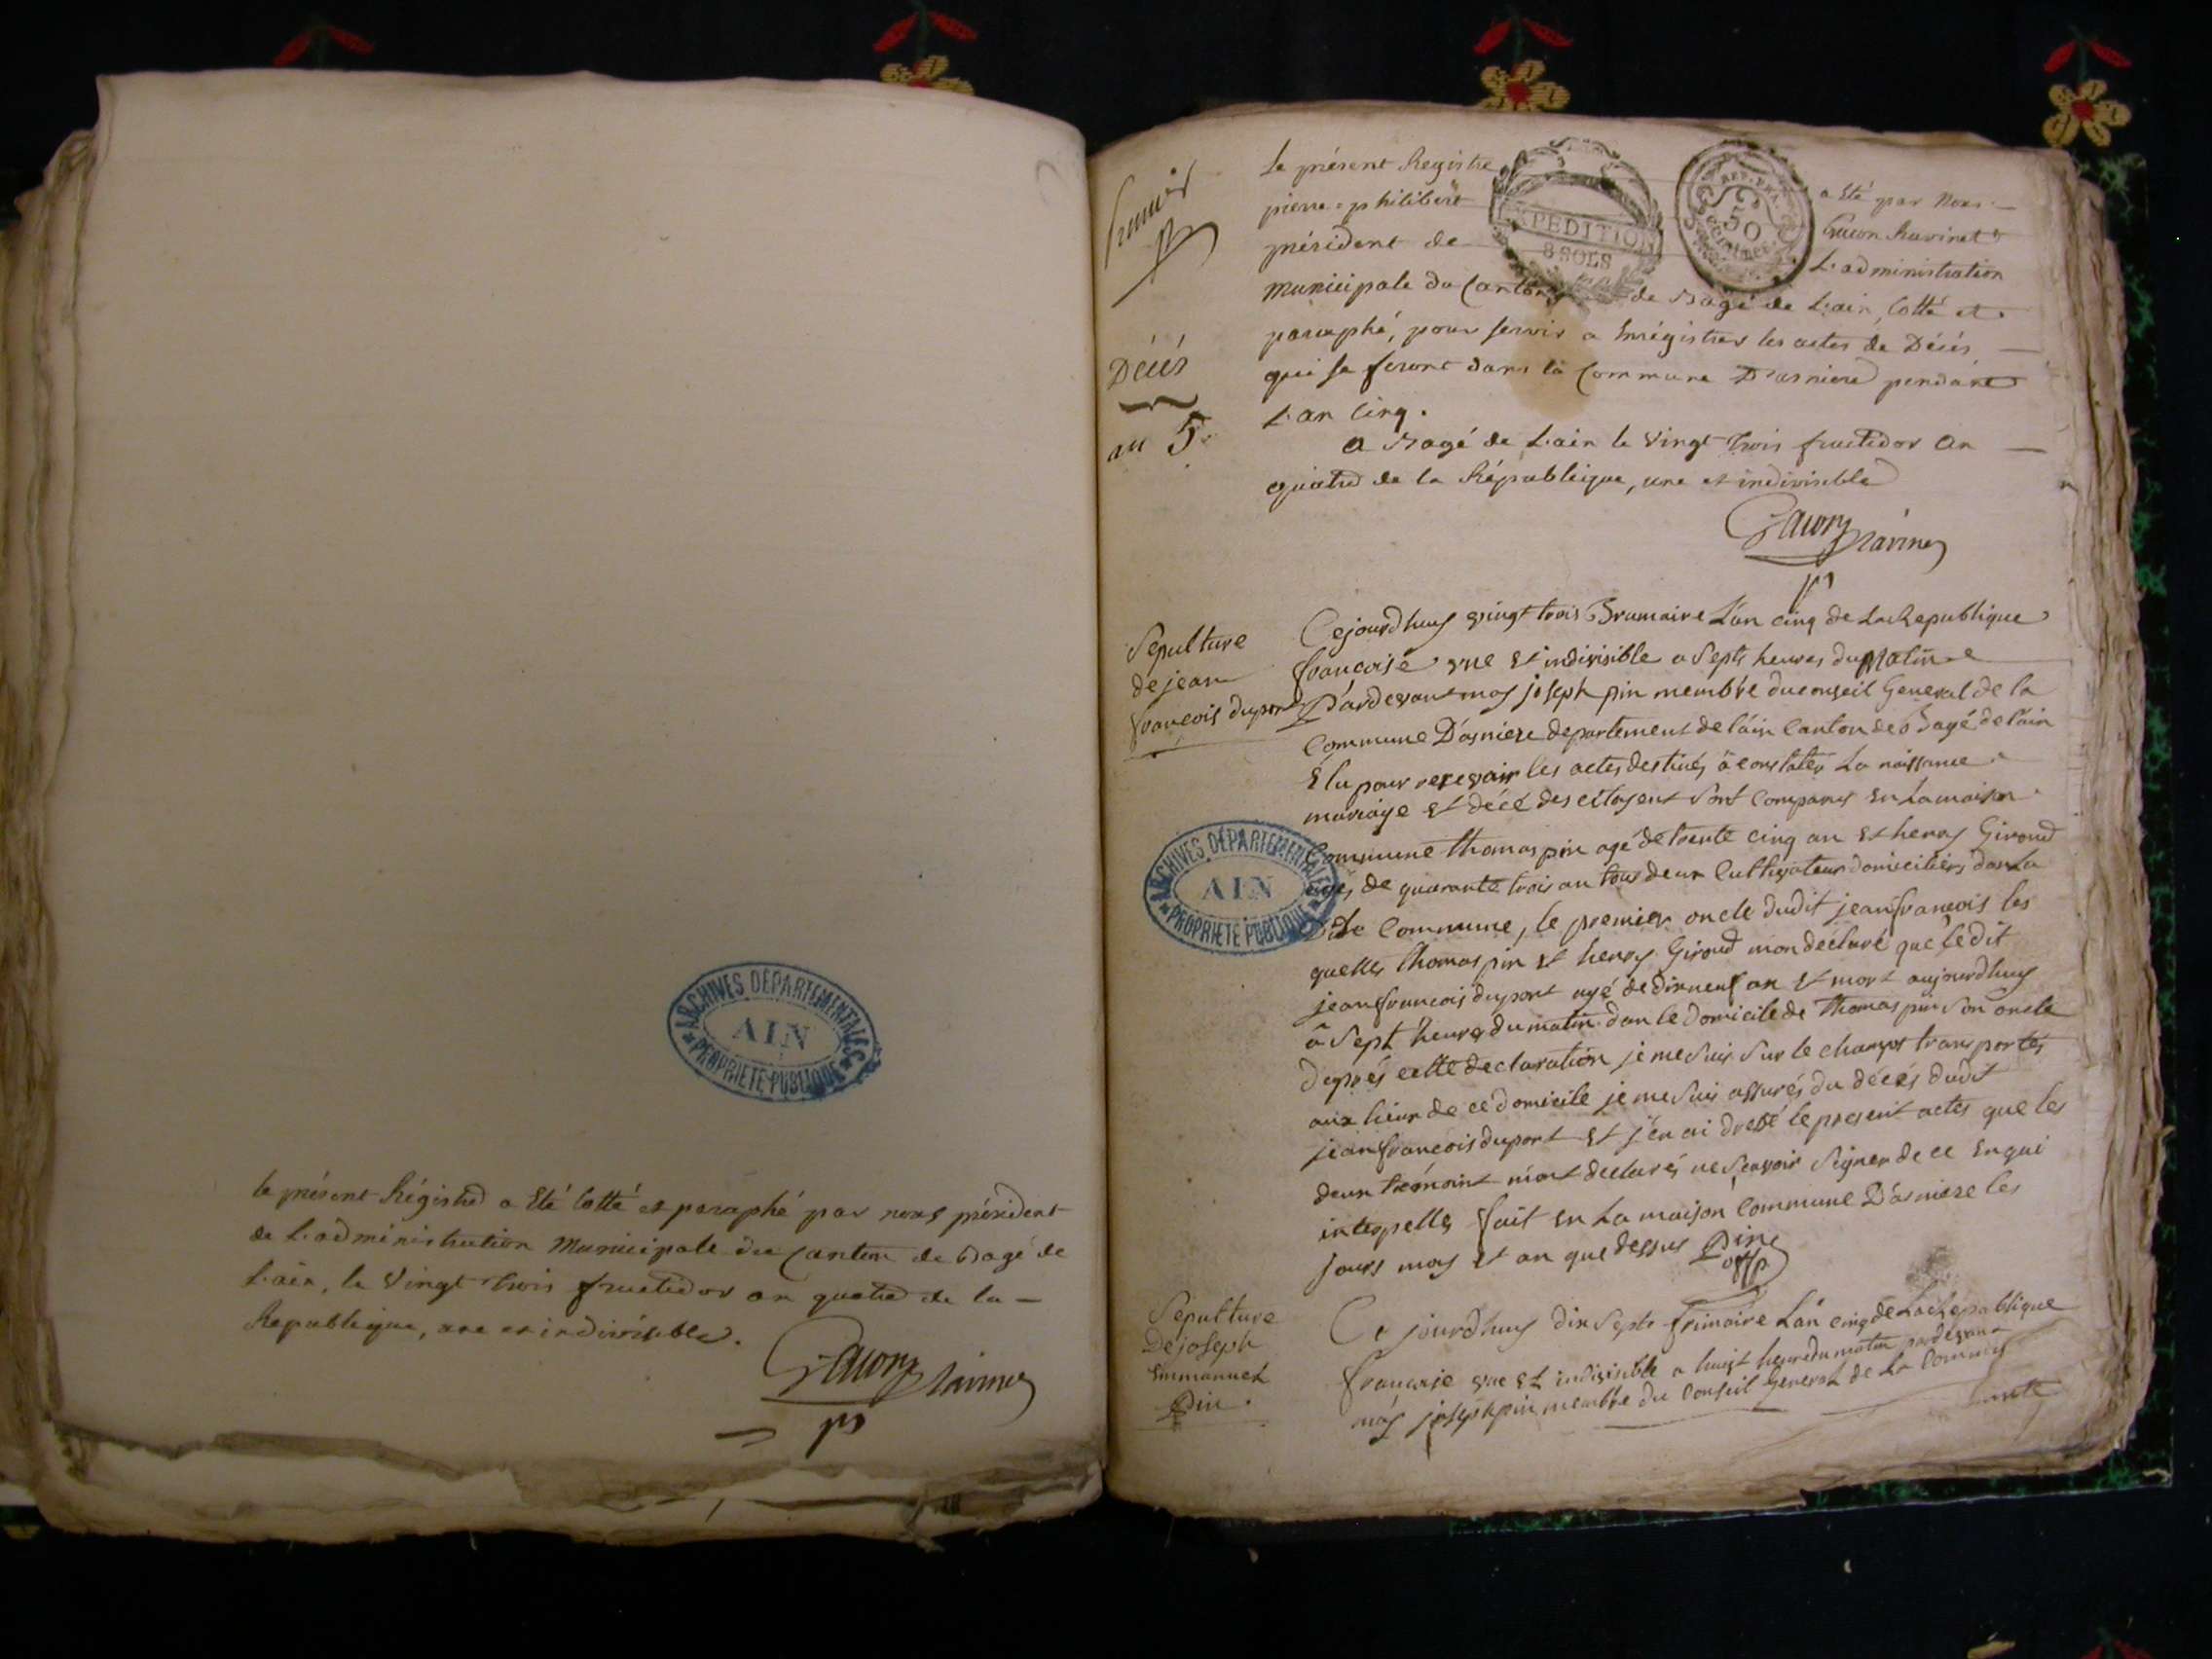 le présent Régistre a Eté Cotté et paraphé par nous président
de L'administration Municipale du Canton de Bagé de
L'ain, le Vingt trois fructidor an quatre de la —
Republique, une et indivisible.
ARCHIVES DÉPARTEMENTALES
AIN
PROPRIÉTÉ PUBLIQUE
premier
Décés
an 5e
le présent Registre a Eté par Nous —
pierre = philibert Ravinet
président de L'administration
Municipale du Canton de Bagé de L'ain, Cotté et
paraphé, pour servir a Enrégistrer les actes de Décés —
qui se feront dans la Commune D'asniere pendant
L'an Cinq.
a Bagé de L'ain le Vingt trois fructidor an —
quatre de la République, une et indivisible
EXPEDITION
8 SOLS
REP. FRA.
50
CENTIMES
Sepulture
de jean
francois dupont
Cejourdhuy vingt trois Brumaire L'an cinq de La Republique
francoise une et indivisible a Septs heures du Matin
Pardevant moy joseph pin membre du conseil General de la
Commune D'asniere departement de l'ain Canton de Bagé de l'ain
Elu pour recevoir les actes destinés a constater La naissance
mariage et décé des citoyens Sont Comparus En La maison
Commune thomas pin agé de trente cinq an et henry Giroud
agés de quarante trois an tous deux Cultivateur domiciliés dans La
Dite Commune, le premier oncle dudit jean francois les
quelles thomas pin et henry Giroud mon déclaré que ledit
jean francois dupont agé de dixneuf an et mort aujourdhuy
a Sept heures du matin dan le domicile de thomas pin Son oncle
daprés cette declaration je me Suis Sur le champs transportés
aux lieux de ce domicile je me Suis assurés du décés dudit
jean francois dupont et j'en ai dressé le present actes que les
deux témoins m'ont declarés ne Scavoir Signer de ce Enqui
interpellés fait En La maison Commune D'asniere les
Jours moy et an que dessus Pin
off p
ARCHIVES DÉPARTEMENTALES
AIN
PROPRIÉTÉ PUBLIQUE
Sepulture
De joseph
Emmanuel
Pin.
Ce jourdhuy dix Septs frimaire L'an cinq de La Republique
francaise une et indivisible a huist heure du matin pardevant
moy joseph pin membre du Conseil General de La Commune